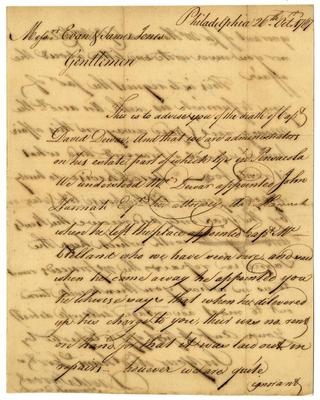 Philadelphia 26th Octr. 1787
Messrs. Evan & James Jones
Gentlemen
This is to advise you of the death of Capt.
David Dewar, And that we are administrators
on his estate part of which lyes in Pensacola
We understand that Dewar appointed John
Hannah Esqr. his attorney,
when he left the place appointed Capt. Mc
who we have seen here and
when he came away he appointed you
he likewise says that when he delivered
up his charge to you, their was no rent
on hand, for that it was laid out in
repairs — however we are quite
ignorant